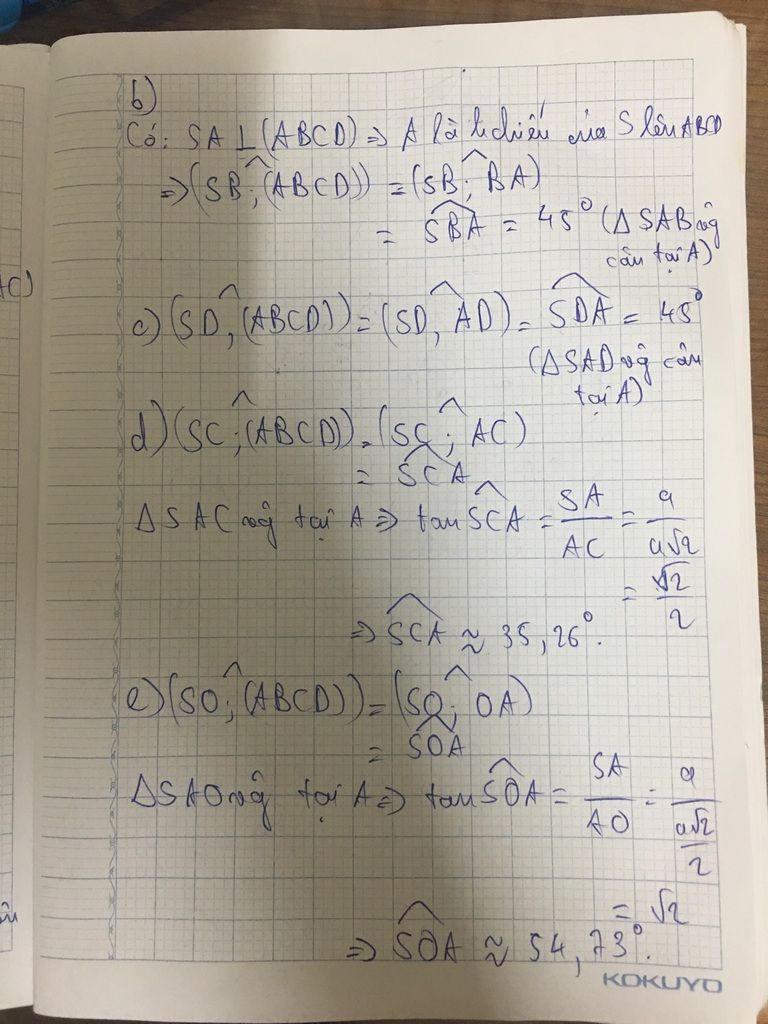 b)
Có: SA ⊥ (ABCD) => A là h.chiếu của S lên ABCD
=> (SB; (ABCD))^ = (SB; BA)^
= SBA^ = 45° (Δ SAB vg
cân tại A)
c) (SD, (ABCD))^ = (SD, AD)^ = SDA^ = 45°
(Δ SAD vg cân
tại A)
d) (SC; (ABCD))^ = (SC; AC)^
= SCA^
Δ SAC vg tại A => tan SCA^ = SA/AC = a/a√2
= √2/2
=> SCA^ ≈ 35,26°.
e) (SO; (ABCD))^ = (SO; OA)^
= SOA^
Δ SAO vg tại A => tan SOA^ = SA/AO = a/(a√2/2)
= √2
=> SOA^ ≈ 54,73°.
KOKUYO